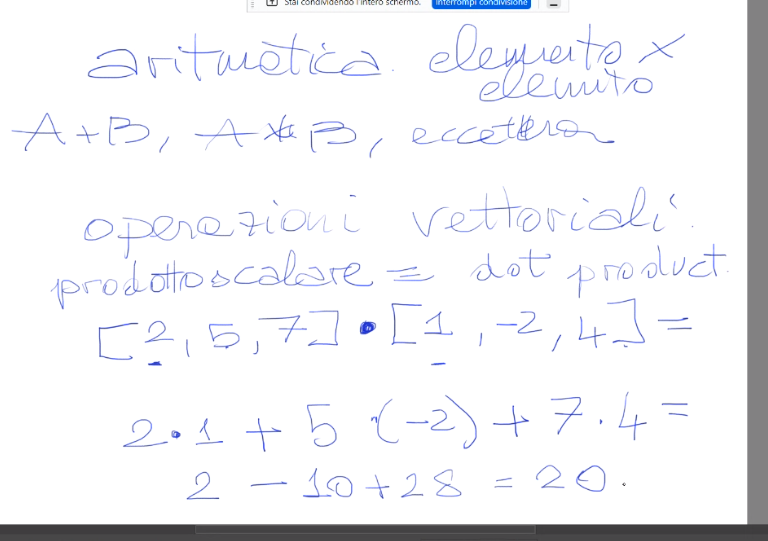 Stai condividendo l'intero schermo. Interrompi condivisione
aritmetica. elemento x
elemento
A+B, A*B, eccettera
operazioni vettoriali.
prodotto scalare = dot product.
[2, 5, 7] • [1, -2, 4] =
2•1 + 5 (-2) + 7.4 =
2 - 10 + 28 = 20.